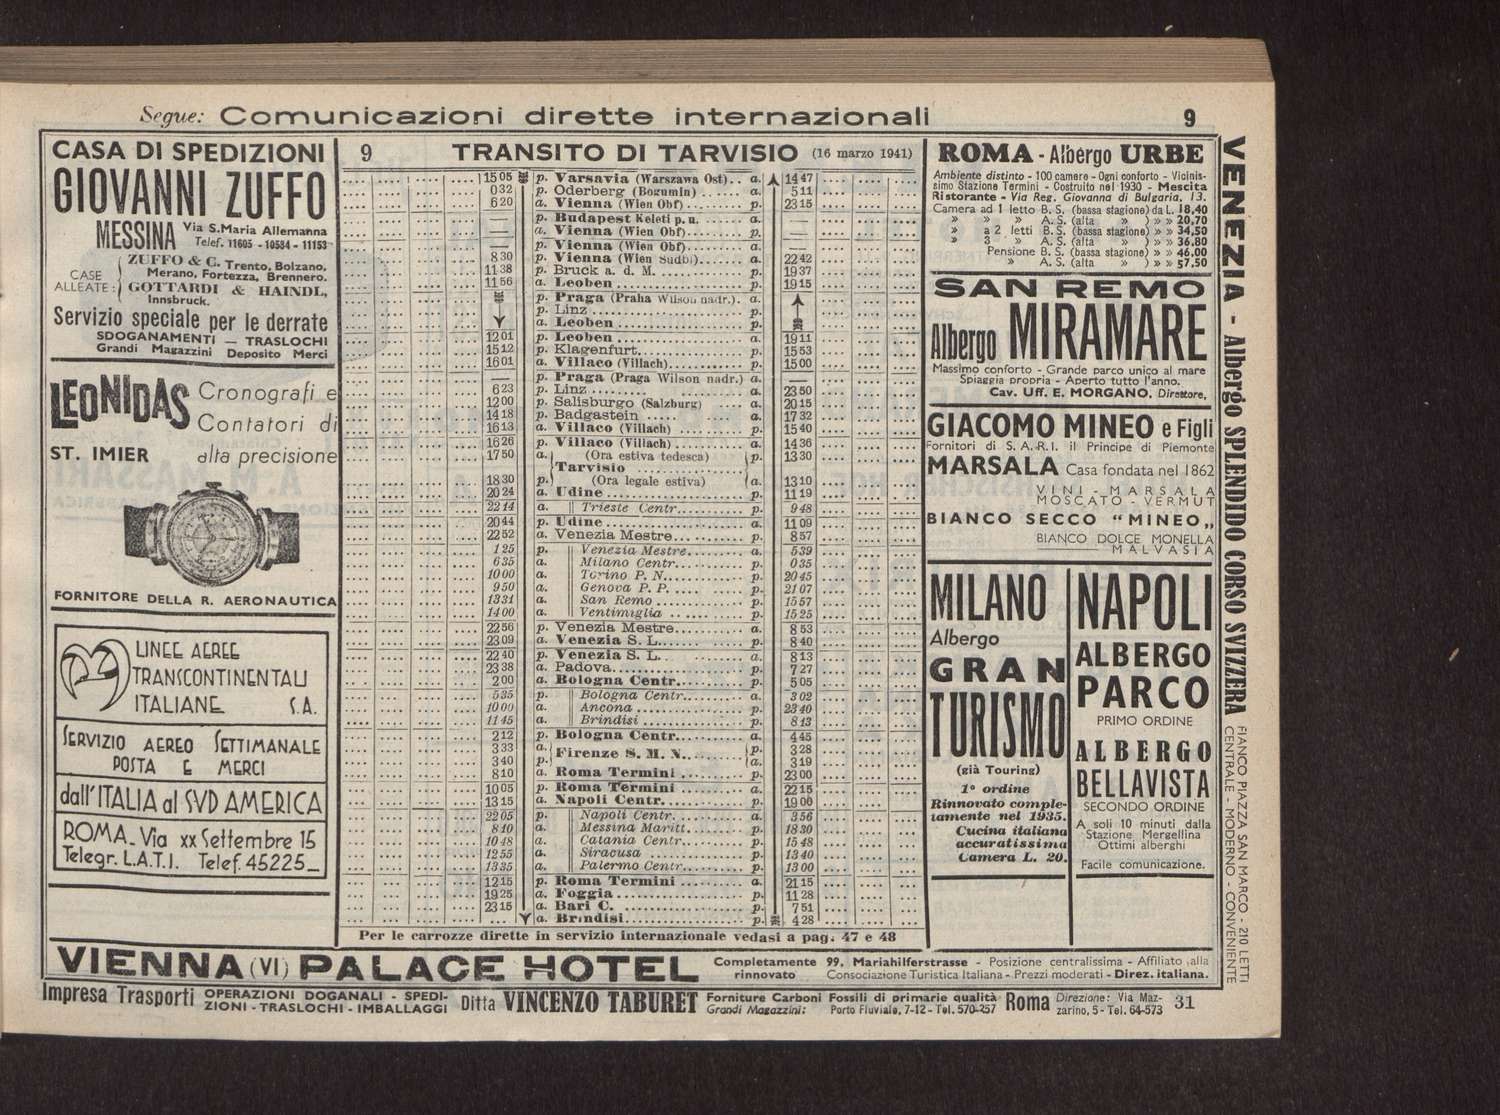 Segue: Comunicazioni dirette internazionali 9
CASA DI SPEDIZIONI
GIOVANNI ZUFFO
MESSINA Via S.Maria Allemanna
Telef. 11605 - 10584 - 11153
CASE ALLEATE: ZUFFO & C. Trento, Bolzano,
Merano, Fortezza, Brennero.
GOTTARDI & HAINDL,
Innsbruck.
Servizio speciale per le derrate
SDOGANAMENTI — TRASLOCHI
Grandi Magazzini Deposito Merci
LEONIDAS
ST. IMIER
Cronografi e
Contatori di
alta precisione
FORNITORE DELLA R. AERONAUTICA
LINEE AEREE
TRANSCONTINENTALI
ITALIANE S.A.
SERVIZIO AEREO SETTIMANALE
POSTA E MERCI
dall'ITALIA al SUD AMERICA
ROMA - Via XX Settembre 15
Telegr. L.A.T.I. Telef. 45225
9 TRANSITO DI TARVISIO (16 marzo 1941)
15 05 p. Varsavia (Warszawa Ost).. a. 14 47
0 32 p. Oderberg (Bogumin) ...... a. 5 11
6 20 a. Vienna (Wien Obf) ........ p. 23 15
— p. Budapest Keleti p. u. ..... a. —
— a. Vienna (Wien Obf) ........ p. —
— p. Vienna (Wien Obf) ........ a. —
8 30 p. Vienna (Wien Sudbf) ...... a. 22 42
11 38 p. Bruck a. d. M. ............ p. 19 37
11 56 a. Leoben .................... p. 19 15
p. Praga (Praha Wilson nadr.). a.
p. Linz ...................... p.
a. Leoben .................... p.
12 01 p. Leoben .................... a. 19 11
15 12 p. Klagenfurt ................ p. 15 53
16 01 a. Villaco (Villach) .......... p. 15 00
— p. Praga (Praga Wilson nadr.) a. —
6 23 p. Linz ...................... p. 23 50
12 00 p. Salisburgo (Salzburg) ..... a. 20 15
14 18 p. Badgastein ................ p. 17 32
16 13 a. Villaco (Villach) .......... p. 15 40
16 26 p. Villaco (Villach) .......... a. 14 36
17 50 a. (Ora estiva tedesca) p. 13 30
Tarvisio
18 30 p. (Ora legale estiva) a. 13 10
20 24 a. Udine ..................... p. 11 19
22 14 a. Trieste Centr. ............ p. 9 48
20 44 p. Udine ..................... a. 11 09
22 52 a. Venezia Mestre ............ p. 8 57
1 25 p. Venezia Mestre ............ a. 5 39
6 35 a. Milano Centr. ............. p. 0 35
10 00 a. Torino P. N. .............. p. 20 45
9 50 a. Genova P. P. .............. p. 21 07
13 31 a. San Remo .................. p. 15 57
14 00 a. Ventimiglia ............... p. 15 25
22 56 p. Venezia Mestre ............ a. 8 53
23 09 a. Venezia S. L. ............. p. 8 40
22 40 p. Venezia S. L. ............. a. 8 13
23 38 a. Padova .................... p. 7 27
2 00 a. Bologna Centr. ............ p. 5 05
5 35 p. Bologna Centr. ............ a. 3 02
10 00 a. Ancona .................... p. 23 40
11 45 a. Brindisi .................. p. 8 13
2 12 p. Bologna Centr. ............ a. 4 45
3 33 a. Firenze S. M. N. p. 3 28
3 40 p. a. 3 19
8 10 a. Roma Termini .............. p. 23 00
10 05 p. Roma Termini .............. a. 22 15
13 15 a. Napoli Centr. ............. p. 19 00
22 05 p. Napoli Centr. ............. a. 3 56
8 10 a. Messina Maritt. ........... p. 18 30
10 48 a. Catania Centr. ............ p. 15 48
12 55 a. Siracusa .................. p. 13 40
13 35 a. Palermo Centr. ............ p. 13 00
12 15 p. Roma Termini .............. a. 21 15
19 25 a. Foggia .................... p. 11 28
23 15 a. Bari C. ................... p. 7 51
.... a. Brindisi .................. p. 4 28
Per le carrozze dirette in servizio internazionale vedasi a pag. 47 e 48
ROMA - Albergo URBE
Ambiente distinto - 100 camere - Ogni conforto - Vicinis-
simo Stazione Termini - Costruito nel 1930 - Mescita
Ristorante - Via Reg. Giovanna di Bulgaria, 13.
Camera ad 1 letto B. S. (bassa stagione) da L. 18,40
» » » A. S. (alta » ) » » 20,70
» a 2 letti B. S. (bassa stagione) » » 34,50
» 3 » A. S. (alta » ) » » 36,80
Pensione B. S. (bassa stagione) » » 46,00
» A. S. (alta » ) » » 57,50
SAN REMO
Albergo MIRAMARE
Massimo conforto - Grande parco unico al mare
Spiaggia propria - Aperto tutto l'anno.
Cav. Uff. E. MORGANO, Direttore,
GIACOMO MINEO e Figli
Fornitori di S. A.R.I. il Principe di Piemonte
MARSALA Casa fondata nel 1862
VINI - MARSALA
MOSCATO - VERMUT
BIANCO SECCO "MINEO„
BIANCO DOLCE MONELLA
MALVASIA
MILANO
Albergo
GRAN
TURISMO
(già Touring)
1° ordine
Rinnovato comple-
tamente nel 1935.
Cucina italiana
accuratissima
Camera L. 20.
NAPOLI
ALBERGO
PARCO
PRIMO ORDINE
ALBERGO
BELLAVISTA
SECONDO ORDINE
A soli 10 minuti dalla
Stazione Mergellina
Ottimi alberghi
Facile comunicazione.
VENEZIA - Albergo SPLENDIDO CORSO SVIZZERA FIANCO PIAZZA SAN MARCO - 210 LETTI
CENTRALE - MODERNO - CONVENIENTE
VIENNA (VI) PALACE HOTEL Completamente rinnovato 99, Mariahilferstrasse - Posizione centralissima - Affiliato alla
Consociazione Turistica Italiana - Prezzi moderati - Direz. italiana.
Impresa Trasporti OPERAZIONI DOGANALI - SPEDI-
ZIONI - TRASLOCHI - IMBALLAGGI Ditta VINCENZO TABURET Forniture Carboni Fossili di primarie qualità
Grandi Magazzini: Porto Fluviale, 7-12 - Tel. 570-257 Roma Direzione: Via Maz-
zarino, 5 - Tel. 64-573
31